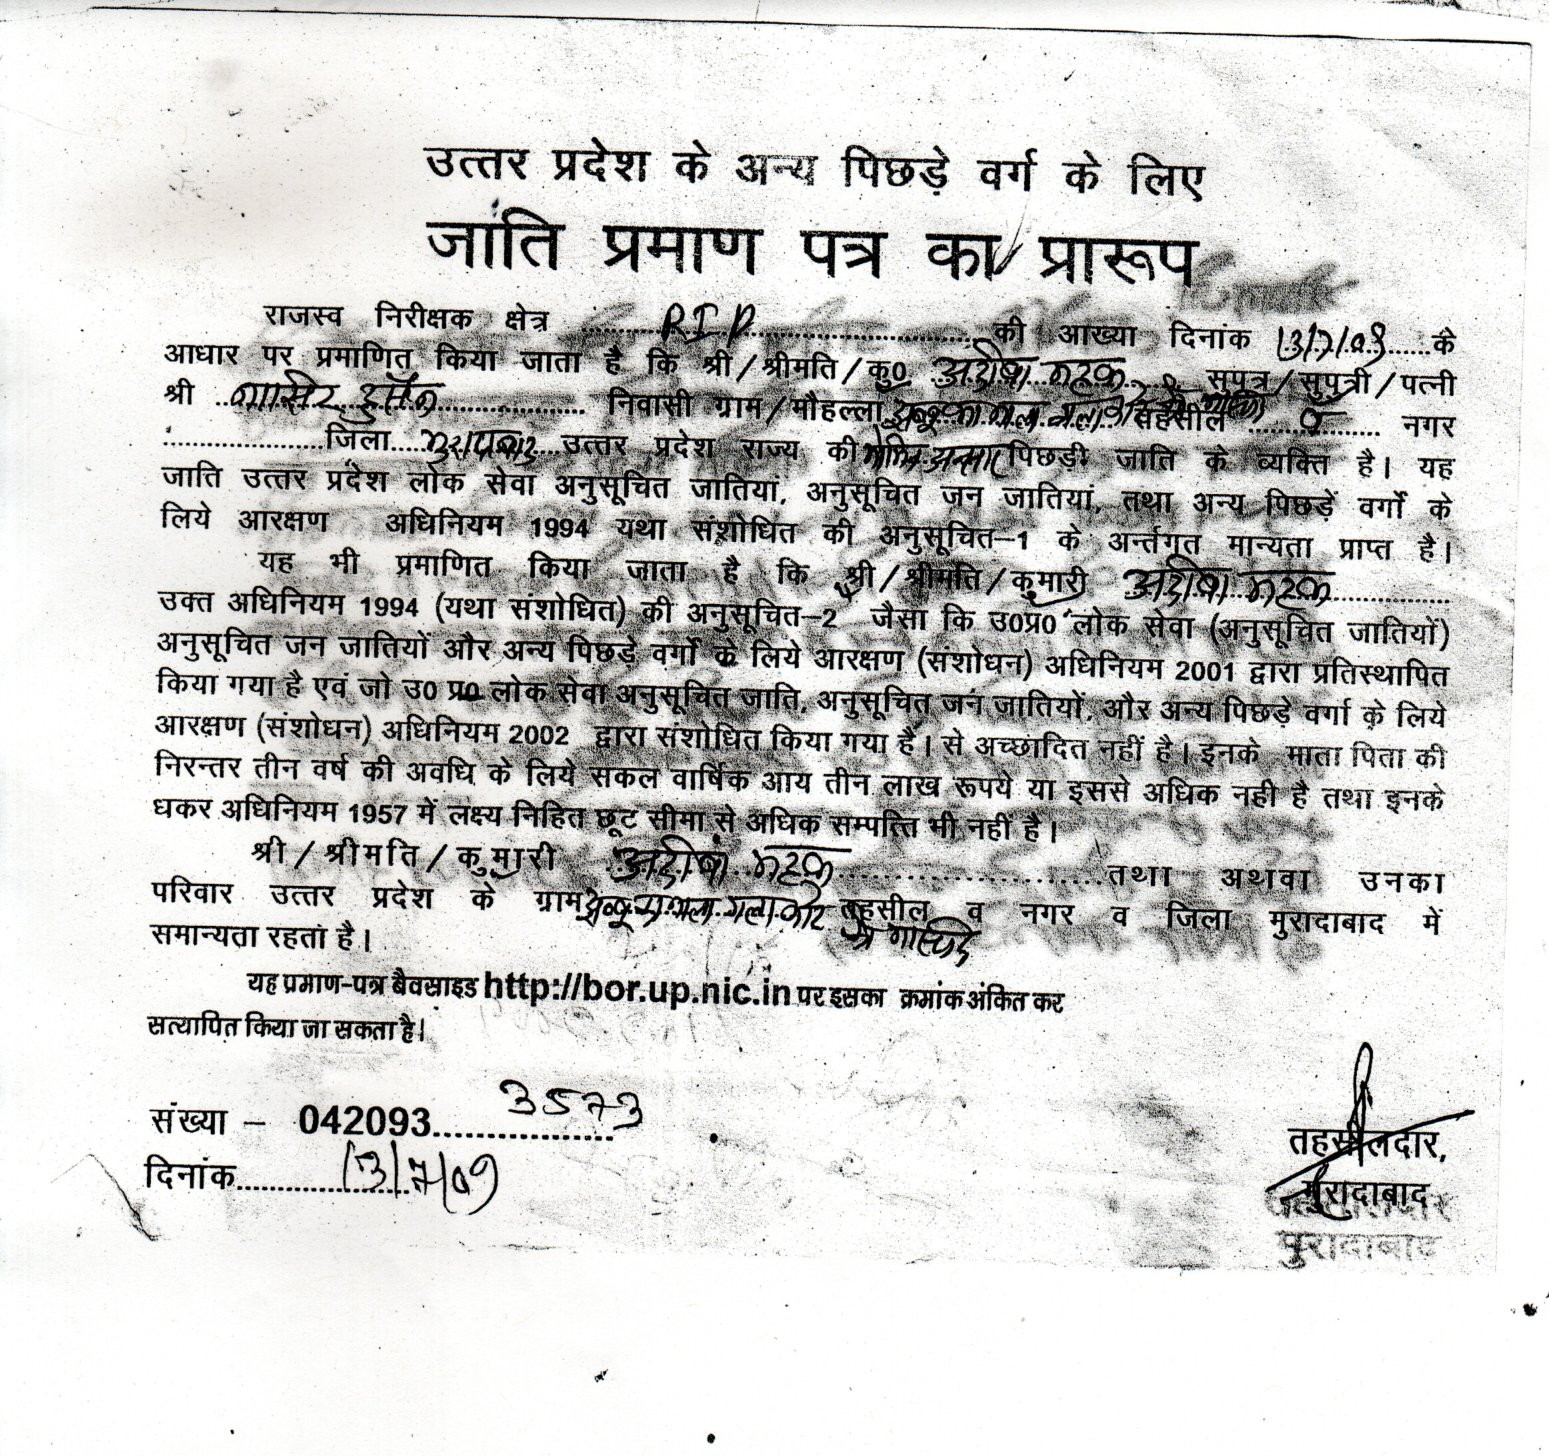 उत्तर प्रदेश के अन्य पिछड़े वर्ग के लिए
जाति प्रमाण पत्र का प्रारूप
राजस्व निरीक्षक क्षेत्र ............ की आख्या दिनांक 13/7/09 के
आधार पर प्रमाणित किया जाता है कि श्री/श्रीमति/कु0 ............ सुपुत्र/सुपुत्री/पत्नी
श्री ............ निवासी ग्राम/मौहल्ला ............ तहसील ............ नगर
............ जिला ............ उत्तर प्रदेश राज्य की ............ पिछड़ी जाति के व्यक्ति है। यह
जाति उत्तर प्रदेश लोक सेवा अनुसूचित जातियां, अनुसूचित जन जातियां, तथा अन्य पिछड़ें वर्गों के
लिये आरक्षण अधिनियम 1994 यथा संशोधित की अनुसूचित–1 के अर्न्तगत मान्यता प्राप्त है।
यह भी प्रमाणित किया जाता है कि श्री/श्रीमति/कुमारी ............
उक्त अधिनियम 1994 (यथा संशोधित) की अनुसूचित–2 जैसा कि उ0प्र0 लोक सेवा (अनुसूचित जातियों)
अनुसूचित जन जातियों और अन्य पिछड़े वर्गों के लिये आरक्षण (संशोधन) अधिनियम 2001 द्वारा प्रतिस्थापित
किया गया है एवं जो उ0 प्र0 लोक सेवा अनुसूचित जाति, अनुसूचित जन जातियों, और अन्य पिछड़े वर्गा के लिये
आरक्षण (संशोधन) अधिनियम 2002 द्वारा संशोधित किया गया है। से अच्छादित नहीं है। इनके माता पिता की
निरन्तर तीन वर्ष की अवधि के लिये सकल वार्षिक आय तीन लाख रूपये या इससे अधिक नही है तथा इनके
धकर अधिनियम 1957 में लक्ष्य निहित छूट सीमा से अधिक सम्पत्ति भी नहीं है।
श्री/श्रीमति/कुमारी ............ तथा अथवा उनका
परिवार उत्तर प्रदेश के ग्राम ............ तहसील व नगर व जिला मुरादाबाद में
समान्यता रहता है।
यह प्रमाण-पत्र बैवसाइड http://bor.up.nic.in पर इसका क्रमांक अंकित कर
सत्यापित किया जा सकता है।
संख्या – 042093 3573
दिनांक 13/7/09
तहसीलदार,
मुरादाबाद
तहसीलदार
मुरादाबाद